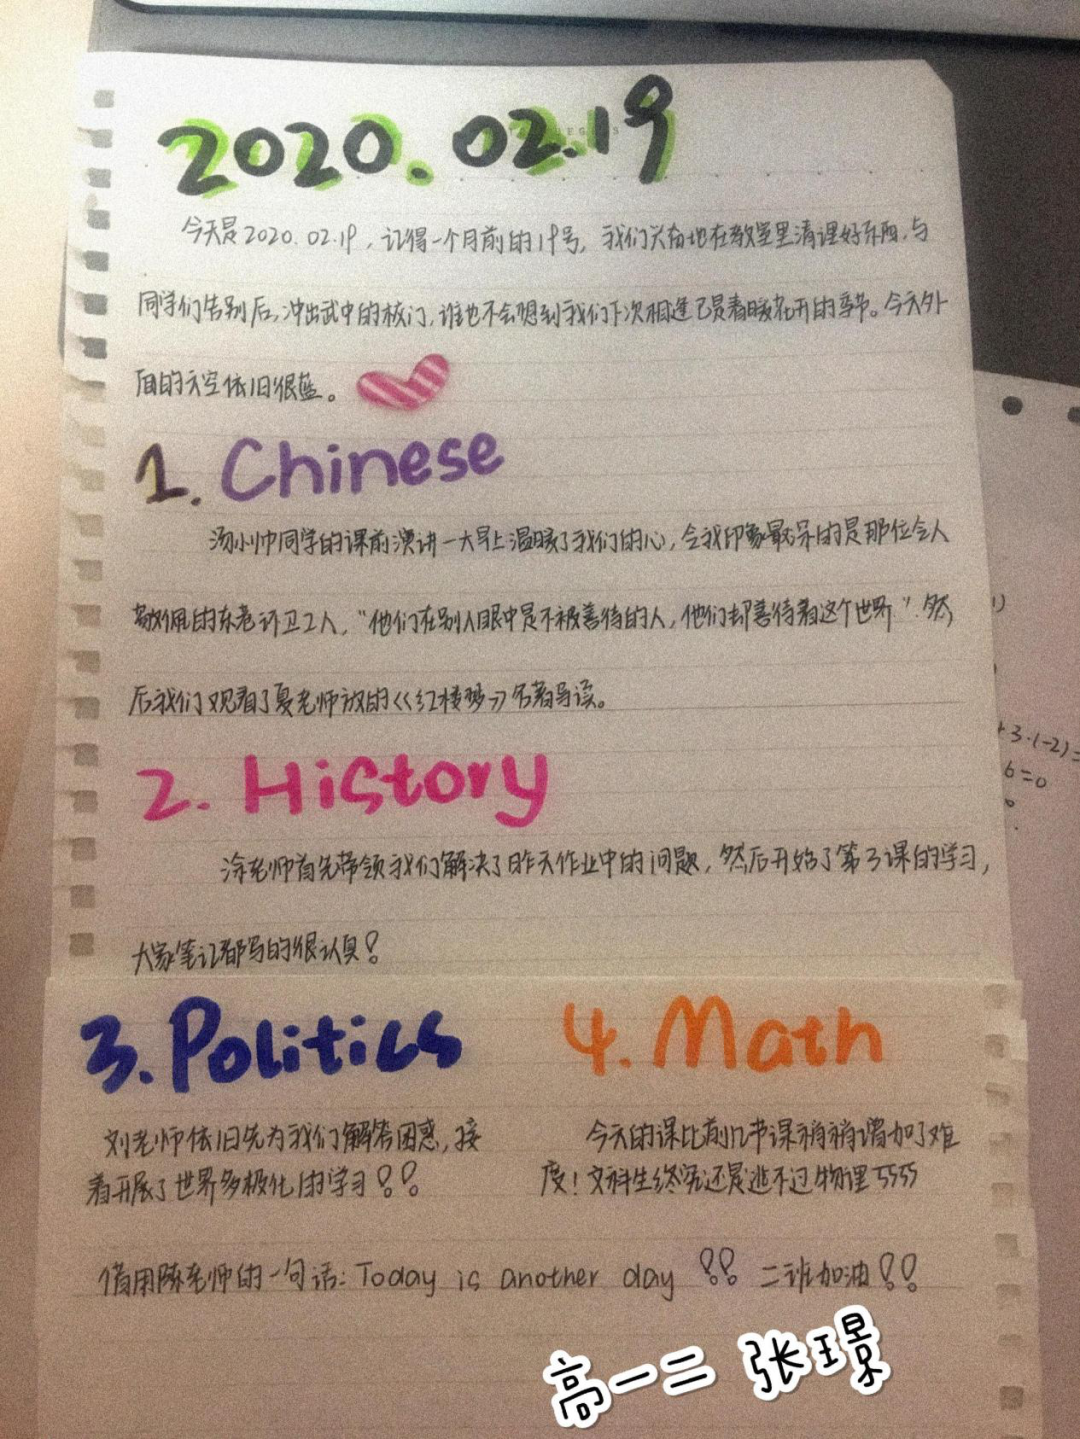 2020.02.19
今天是2020.02.19,记得一个月前的19号,我们兴奋地在教室里清理好东西,与
同学们告别后,冲出武中的校门,谁也不会想到我们下次相逢已是春暖花开的季节。今天外
面的天空依旧很蓝。
1. Chinese
汤小帅同学的课前演讲一大早上温暖了我们的心,令我印象最深的是那位令人
敬佩的东老环卫工人,“他们在别人眼中是不被善待的人,他们却善待着这个世界”.然
后我们观看了夏老师放的《红楼梦》名著导读。
2. History
涂老师首先带领我们解决了昨天作业中的问题,然后开始了第3课的学习,
大家笔记都写的很认真!
3. Politics
4. Math
刘老师依旧先为我们解答困惑,接
着开展了世界多极化的学习!!
今天的课比前几节课稍稍增加了难
度!文科生终究还是逃不过物理5555
借用陈老师的一句话:Today is another day !! 二班加油!!
高一二 张璟
+3·(-2)=
6=0